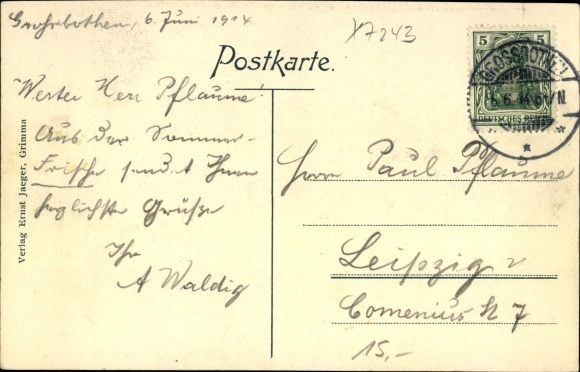 Großbothen, 6. Juni 1914
X7243
Postkarte.
5 5
DEUTSCHES REICH
GROSSBOTHEN
6.6.14. 6-7 N.
Werter Herr Pflaume
Aus der Sommer-
Frische sendet Ihnen
herzlichste Grüße
Ihr
A Waldig
Verlag Ernst Jaeger, Grimma
Herrn Paul Pflaume
Leipzig
Comenius St 7
15,-